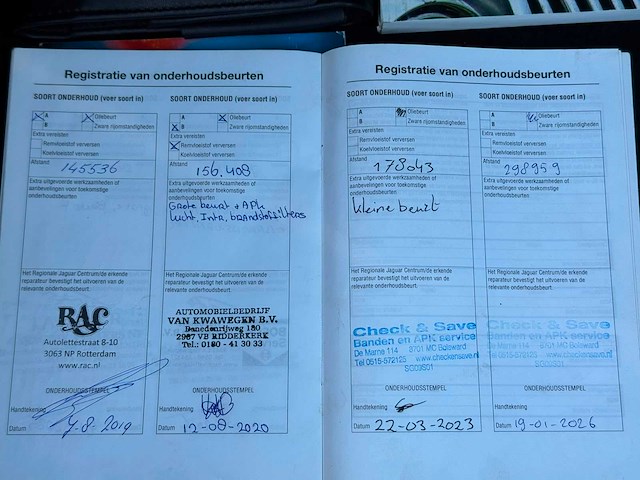 Registratie van onderhoudsbeurten
SOORT ONDERHOUD (voer soort in)
A
Oliebeurt
B
Zware rijomstandigheden
Extra vereisten
Remvloeistof verversen
Koelvloeistof verversen
Afstand
145536
Extra uitgevoerde werkzaamheden of
aanbevelingen voor toekomstige
onderhoudsbeurten
Het Regionale Jaguar Centrum/de erkende
reparateur bevestigt het uitvoeren van de
relevante onderhoudsbeurt.
RAC
Autolettestraat 8-10
3063 NP Rotterdam
www.rac.nl
ONDERHOUDSSTEMPEL
Handtekening
Datum 7-8-2019
SOORT ONDERHOUD (voer soort in)
A
Oliebeurt
B
Zware rijomstandigheden
Extra vereisten
Remvloeistof verversen
Koelvloeistof verversen
Afstand
156.408
Extra uitgevoerde werkzaamheden of
aanbevelingen voor toekomstige
onderhoudsbeurten
Grote beurt + APk
lucht, Intr, brandstoffilters
Het Regionale Jaguar Centrum/de erkende
reparateur bevestigt het uitvoeren van de
relevante onderhoudsbeurt.
AUTOMOBIELBEDRIJF
VAN KWAWEGEN B.V.
Benedenrijweg 180
2987 VB RIDDERKERK
Tel.: 0180 - 41 30 33
ONDERHOUDSSTEMPEL
Handtekening
Datum 12-08-2020
Registratie van onderhoudsbeurten
SOORT ONDERHOUD (voer soort in)
A
Oliebeurt
B
Zware rijomstandigheden
Extra vereisten
Remvloeistof verversen
Koelvloeistof verversen
Afstand
178043
Extra uitgevoerde werkzaamheden of
aanbevelingen voor toekomstige
onderhoudsbeurten
kleine beurt
Het Regionale Jaguar Centrum/de erkende
reparateur bevestigt het uitvoeren van de
relevante onderhoudsbeurt.
Check & Save
Banden en APK service
De Marne 114 8701 MC Bolsward
Tel 0515-572125 www.checkensave.nl
ONDERHOUDSSTEMPEL
Handtekening
Datum 22-03-2023
SOORT ONDERHOUD (voer soort in)
A
Oliebeurt
B
Zware rijomstandigheden
Extra vereisten
Remvloeistof verversen
Koelvloeistof verversen
Afstand
298959
Extra uitgevoerde werkzaamheden of
aanbevelingen voor toekomstige
onderhoudsbeurten
Het Regionale Jaguar Centrum/de erkende
reparateur bevestigt het uitvoeren van de
relevante onderhoudsbeurt.
Check & Save
Banden en APK service
De Marne 114 8701 MC Bolsward
Tel 0515-572125 www.checkensave.nl
ONDERHOUDSSTEMPEL
Handtekening
Datum 19-01-2026